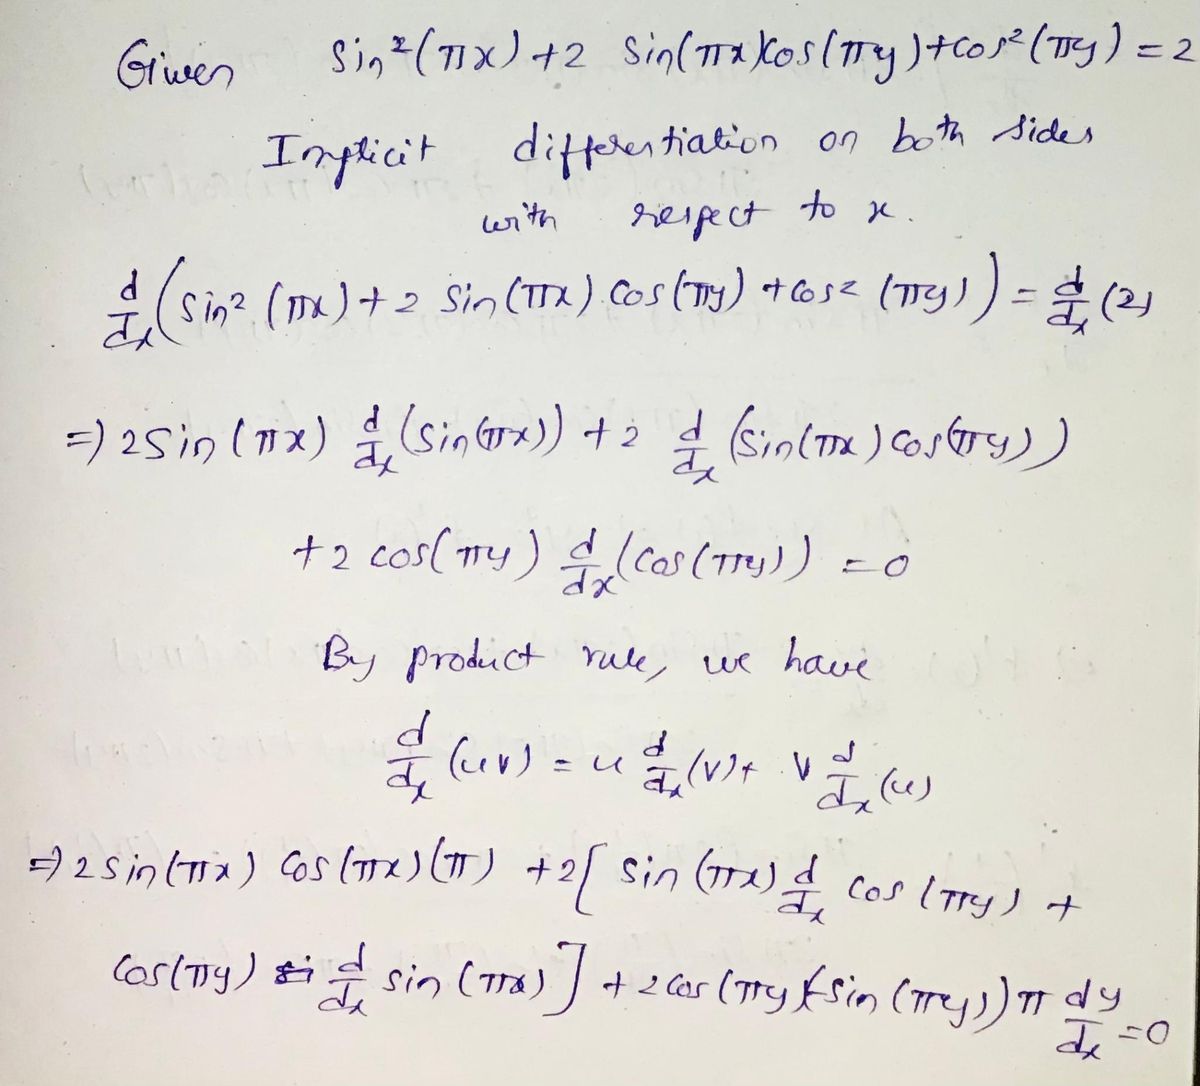 Given sin²(πx)+2 sin(πx)cos(πy)+cos²(πy)=2
Implicit differentiation on both sides
with respect to x.
d/dx (sin²(πx)+2 sin(πx).cos(πy)+cos²(πy)) = d/dx (2)
=) 2sin(πx) d/dx (sin(πx)) +2 d/dx (sin(πx) cos(πy))
+2 cos(πy) d/dx (cos(πy)) =0
By product rule, we have
d/dx (uv) = u d/dx (v)+ v d/dx (u)
=) 2sin(πx) cos(πx)(π) +2[ sin(πx) d/dx cos(πy) +
cos(πy) d/dx sin(πx) ] +2cos(πy)(-sin(πy))π dy/dx =0